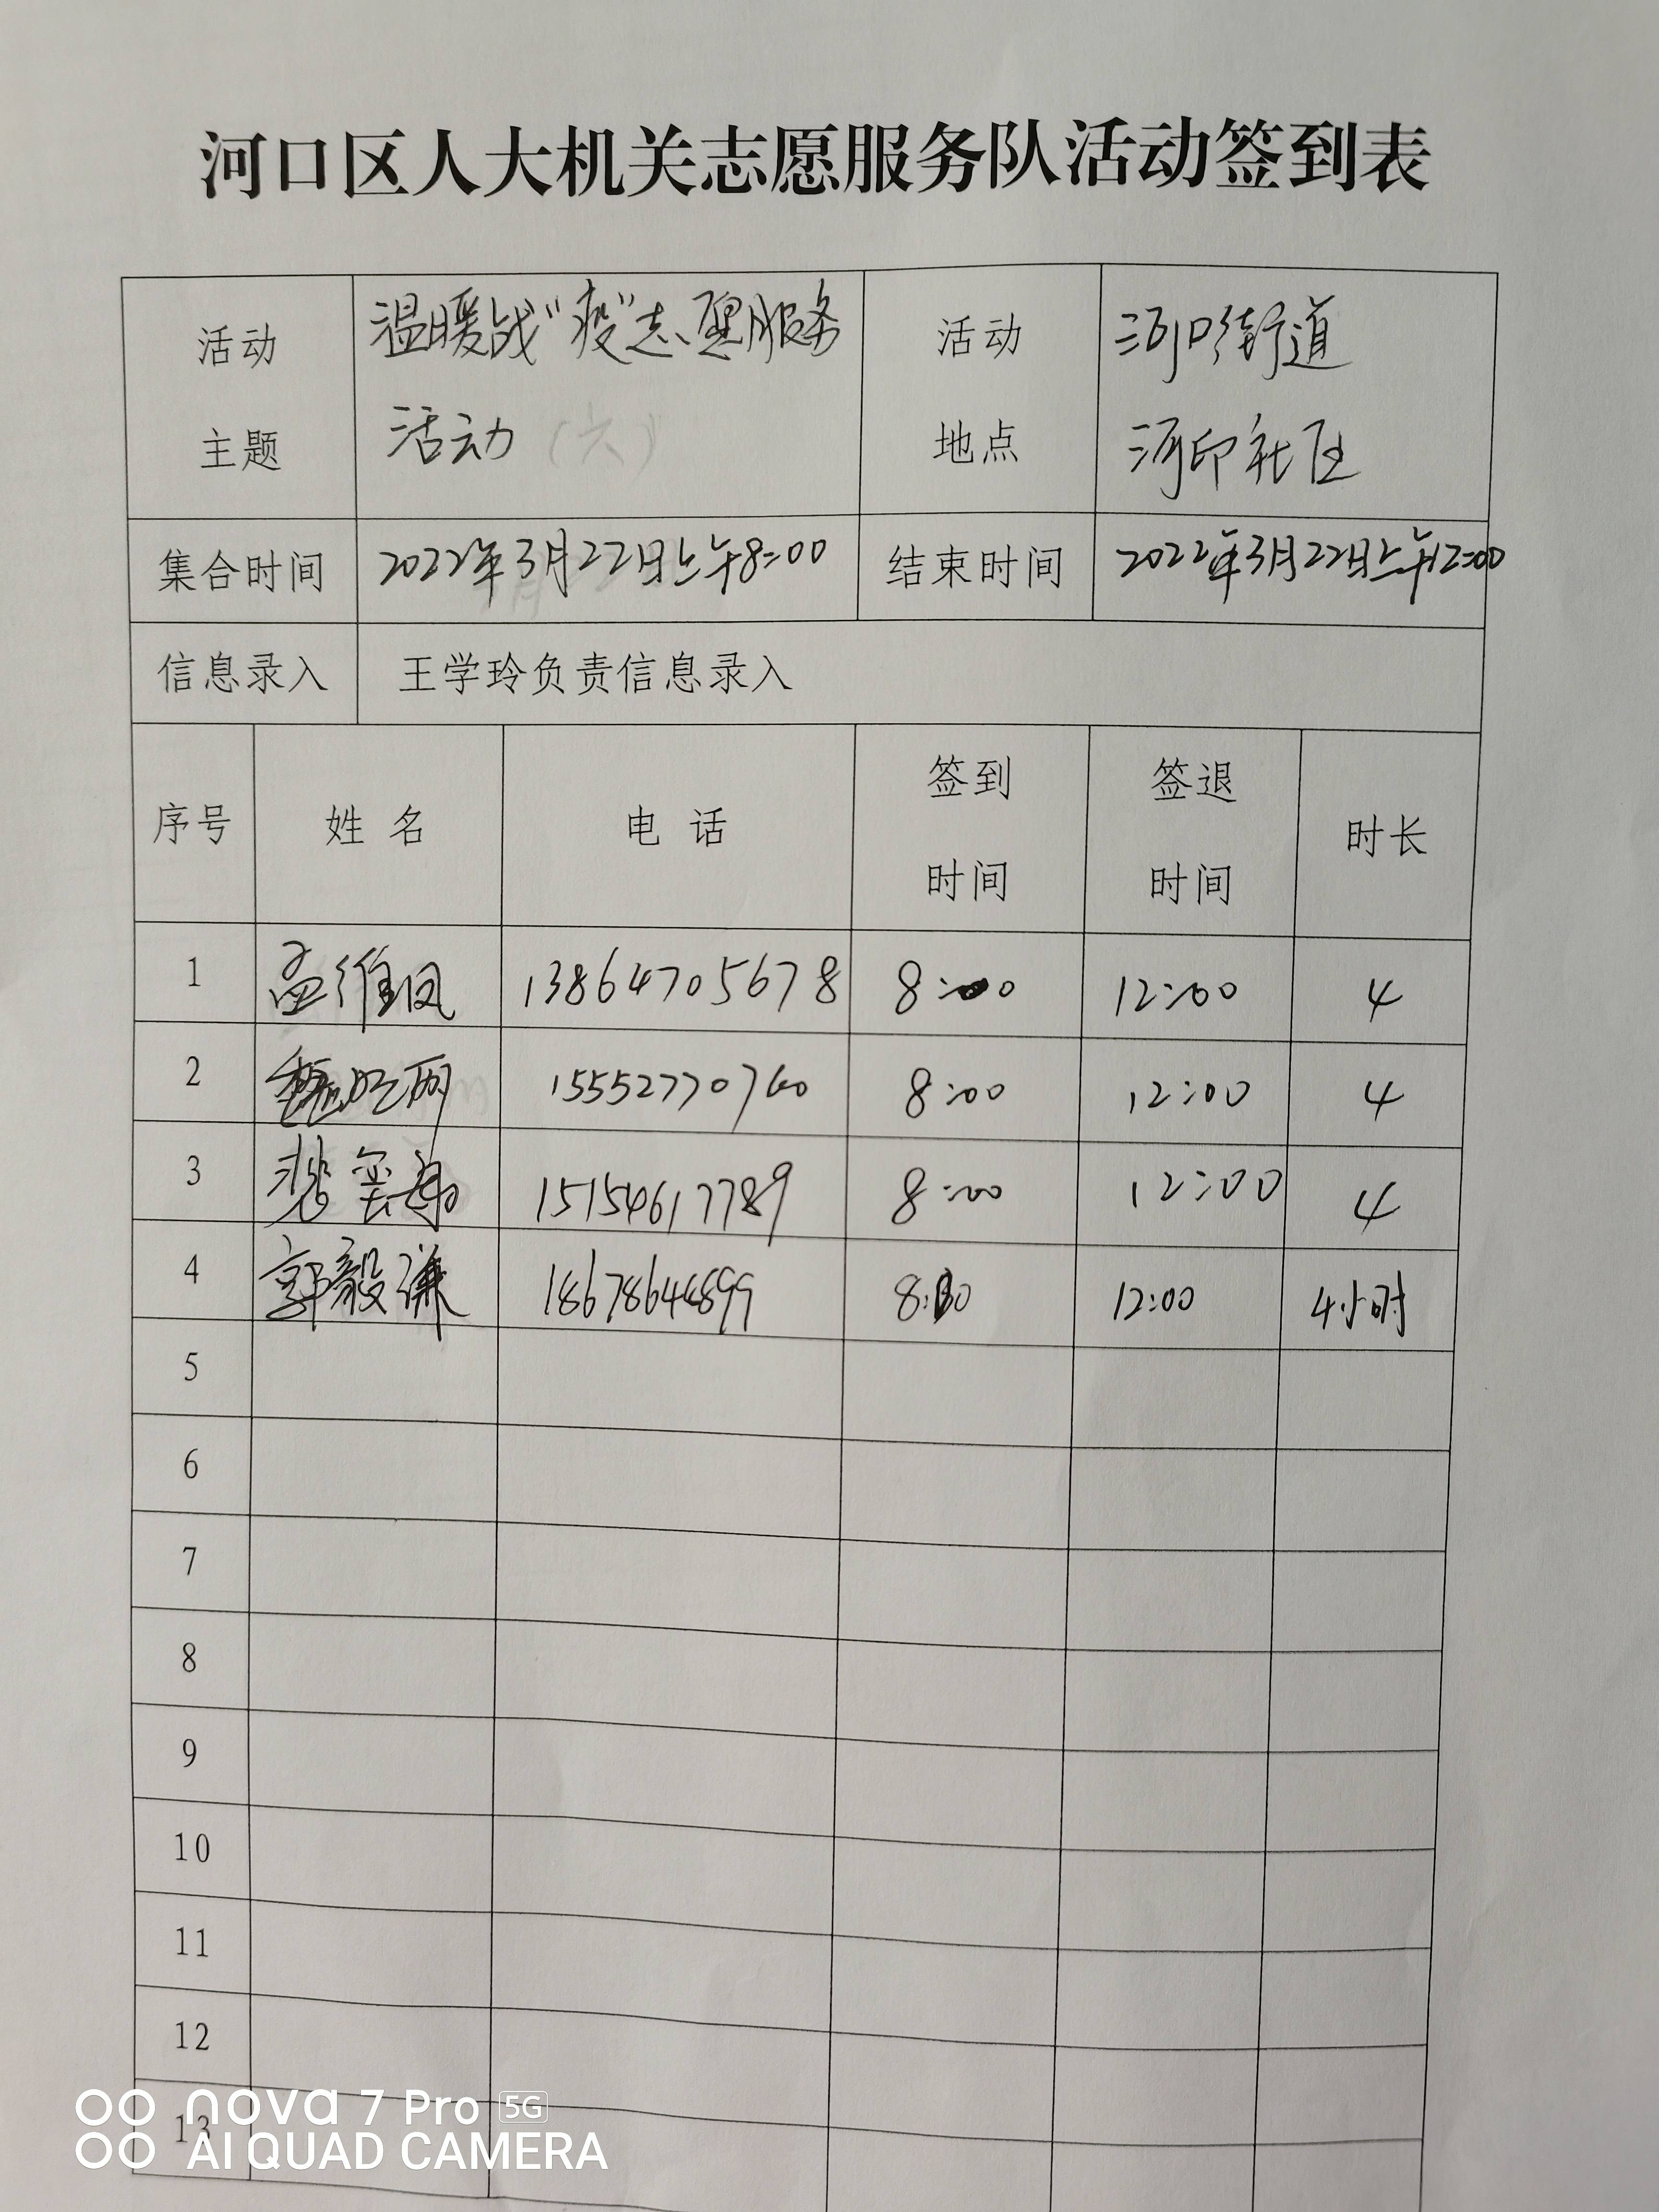 河口区人大机关志愿服务队活动签到表
活动 温暖战“疫”志愿服务 活动 河口街道
主题 活动（六） 地点 河印社区
集合时间 2022年3月22日上午8:00 结束时间 2022年3月22日上午12:00
信息录入 王学玲负责信息录入
序号 姓名 电话 签到时间 签退时间 时长
1 孟维凤 13864705678 8:00 12:00 4
2 15552770760 8:00 12:00 4
3 15154617789 8:00 12:00 4
4 郭毅谦 8:00 12:00 4小时
5
6
7
8
9
10
11
12
13
nova 7 Pro 5G
AI QUAD CAMERA